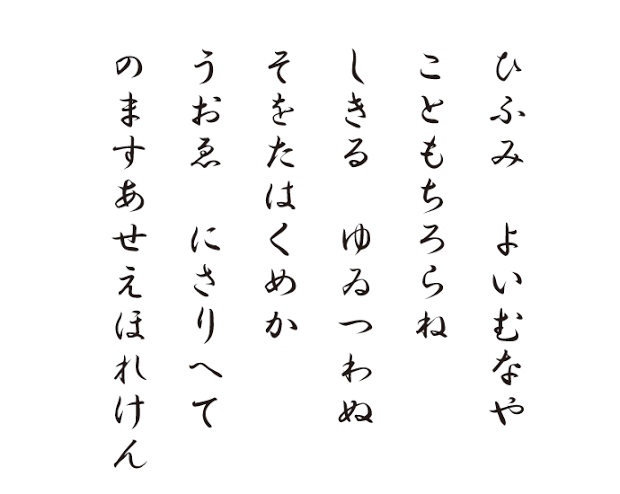 ひふみ　よいむなや
こともちろらね
しきる　ゆゐつわぬ
そをたはくめか
うおゑ　にさりへて
のますあせえほれけん